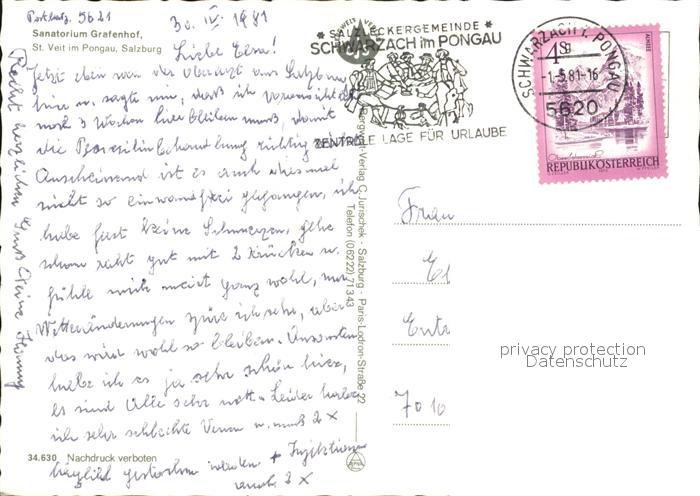 Postleitz. 5621
30. IV. 1981
Sanatorium Grafenhof,
St. Veit im Pongau, Salzburg
Liebe Elsa!
Jetzt eben war der Oberarzt aus Salzburg
hier u. sagte mir, daß ich voraussichtlich
noch 3 Wochen hier bleiben muß, damit
die behandlung richtig
Anscheinend ist es auch diesmal
nicht so einwandfrei gegangen, ich
habe fast keine Schmerzen, gehe
schon recht gut mit 2 Krücken u.
fühle mich meist ganz wohl, nur
Wetteränderungen spüre ich sehr, aber
das wird wohl so bleiben. Ansonsten
habe ich es ja sehr schön hier,
es sind Alle sehr nett. Leider habe
ich sehr schlechte Venen u. muß 2 x
täglich gestochen werden + Injektionen
auch 3 x
Recht herzlichen Gruß Deine
34.630 Nachdruck verboten
Verlag C. Jurischek - Salzburg - Paris-Lodron-Straße 22
Telefon (06222) 71 3 43
SALZLECKERGEMEINDE
SCHWARZACH im PONGAU
ZENTRALE LAGE FÜR URLAUBE
SCHWARZACH i. PONGAU
-1.-5.81-16
5620
4 S
ALMSEE
REPUBLIK ÖSTERREICH
Frau
El
Entz
7010
privacy protection
Datenschutz